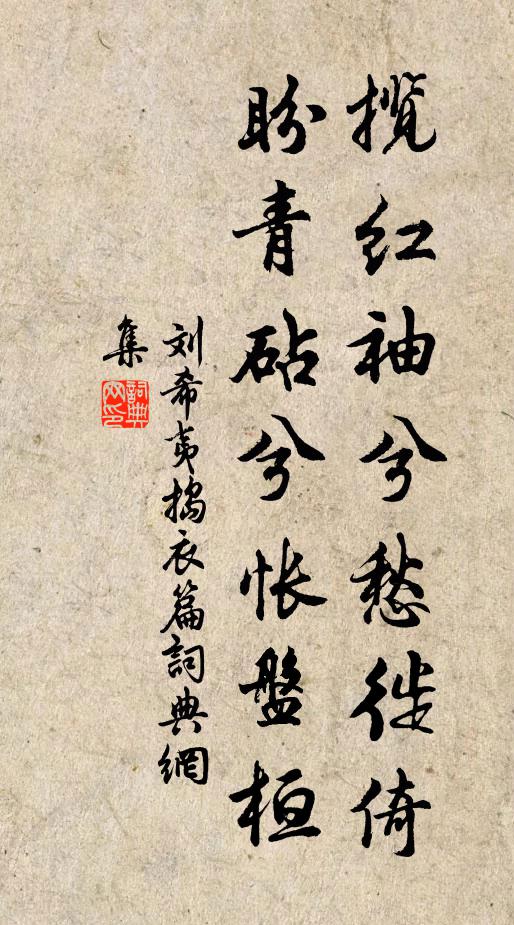 揽红袖兮愁徙倚
盼青砧兮怅盤桓
刘希夷捣衣篇詞典網
集
詞典
网印